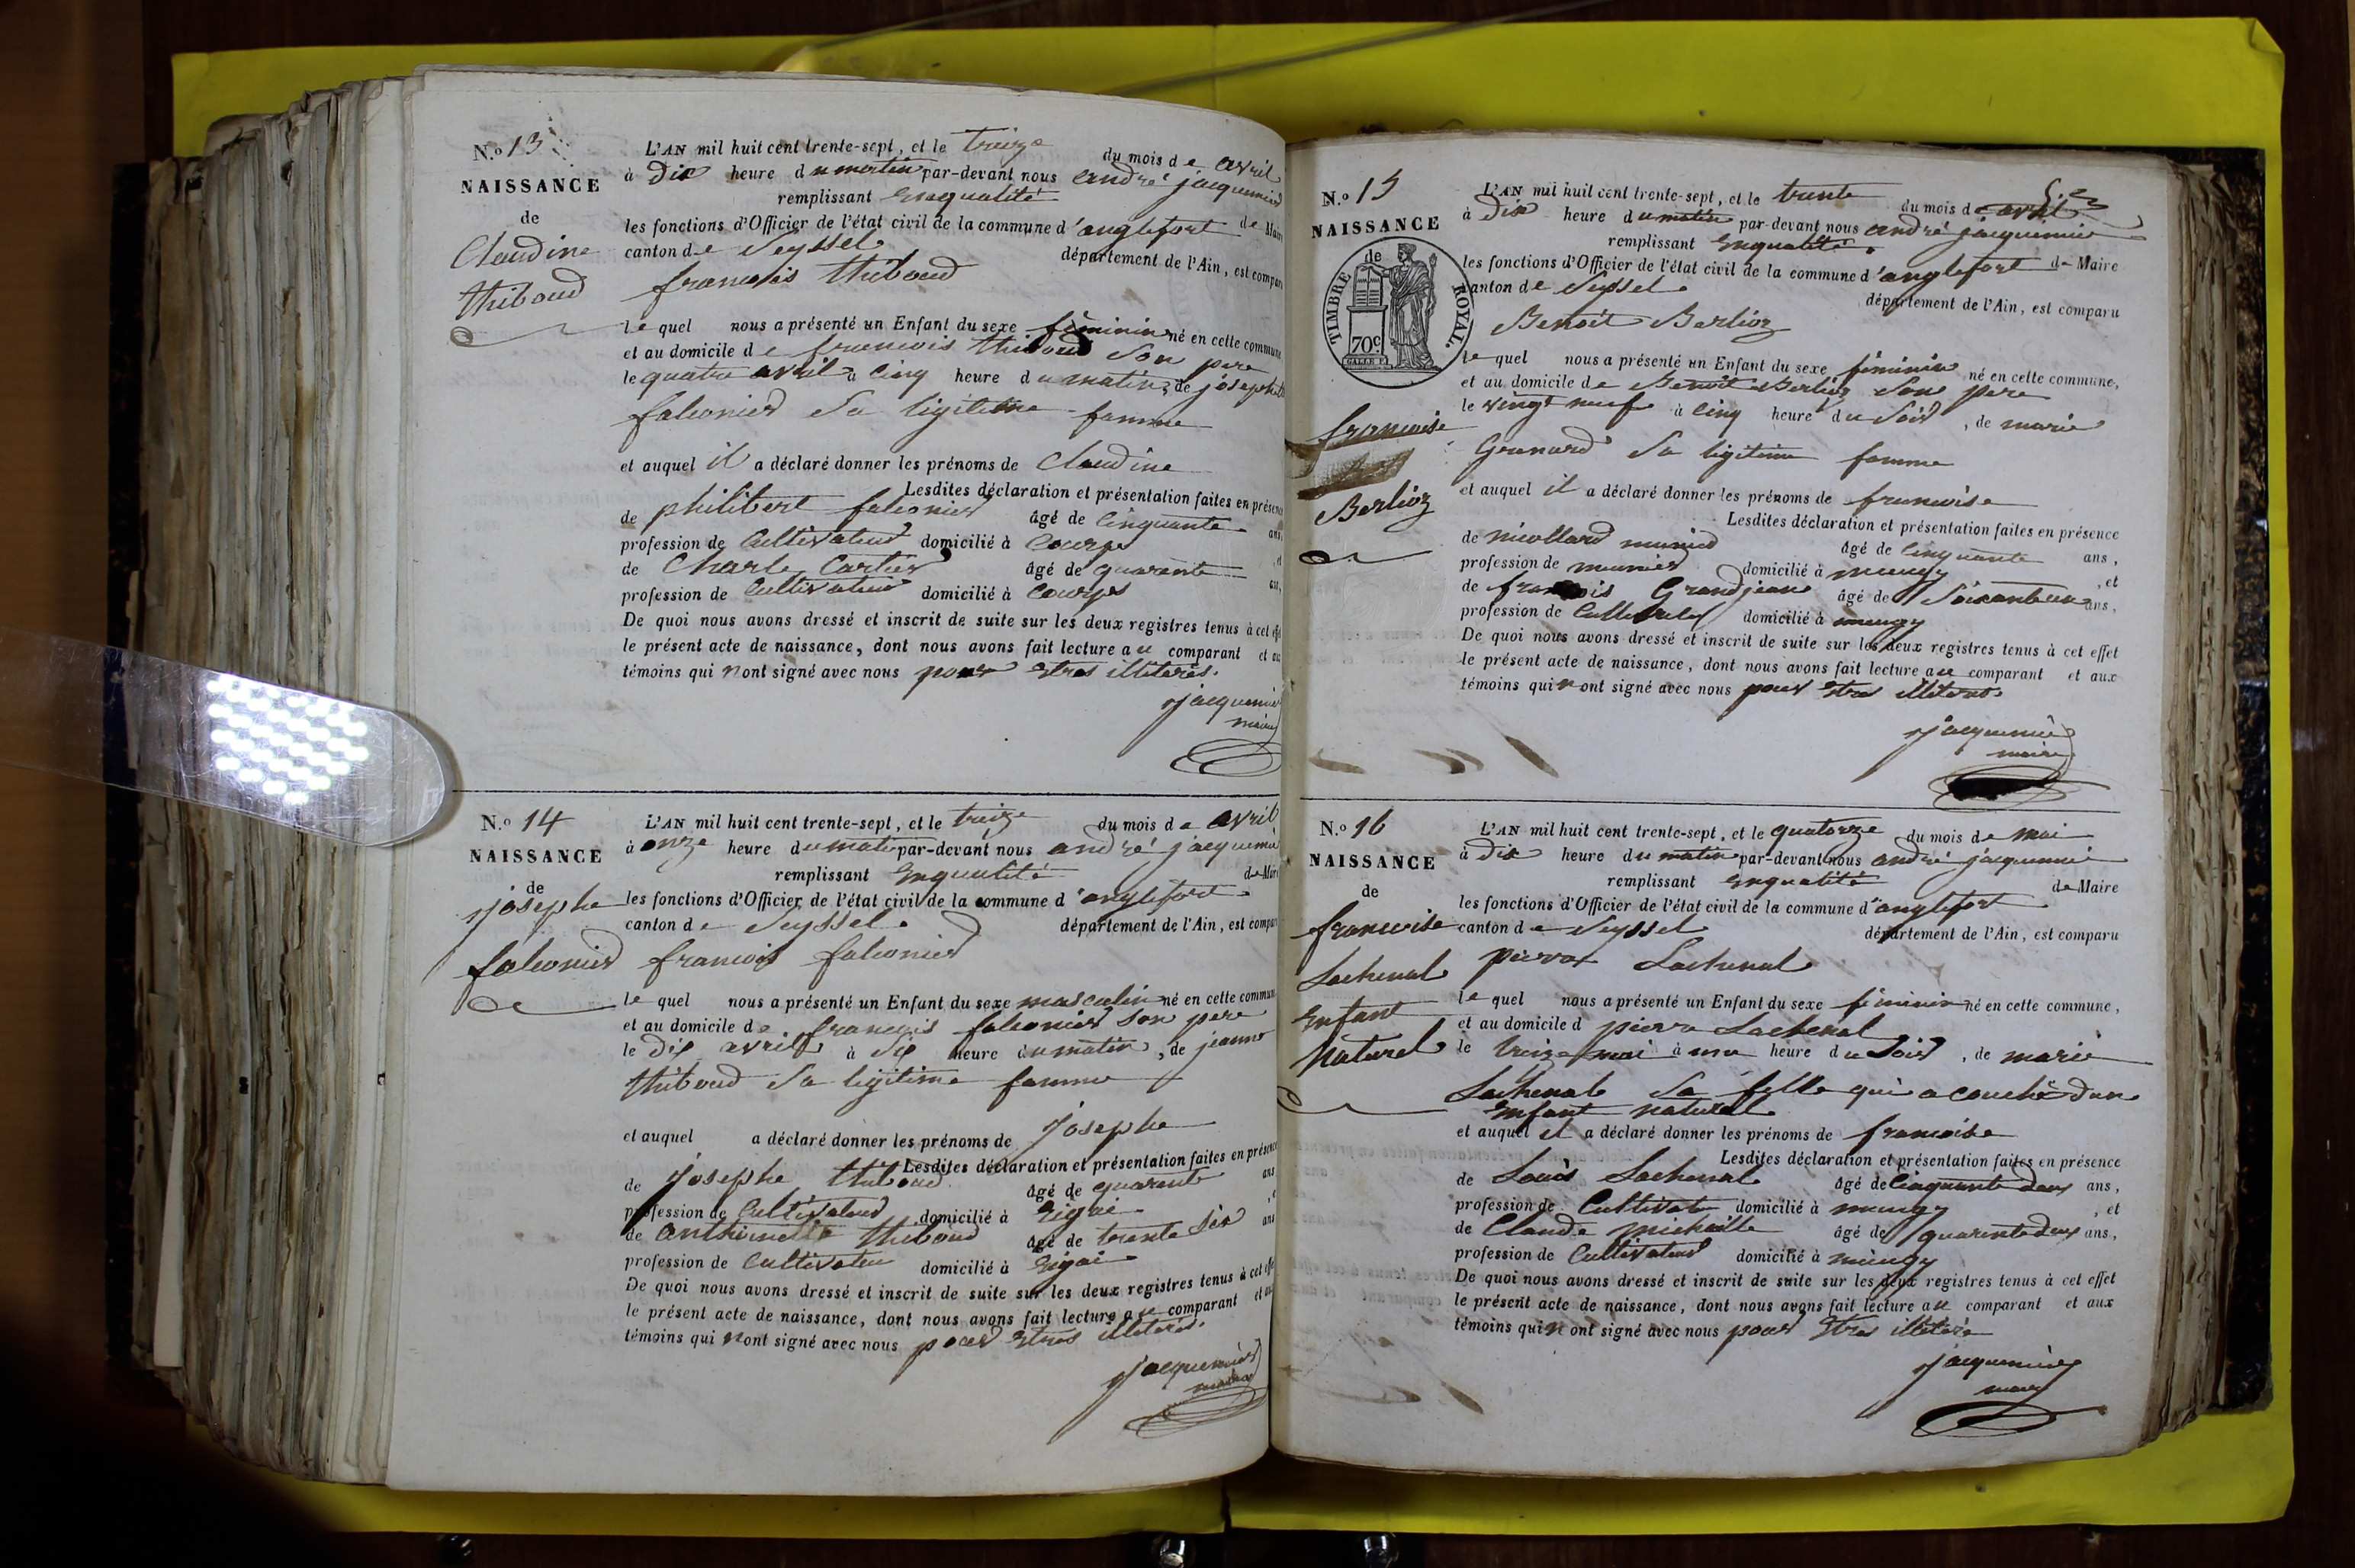 N.o 13
NAISSANCE
de
Claudine
thiboud
L'AN mil huit cent trente-sept, et le treize du mois de avril
à dix heure du matin par-devant nous andré jacquemier
remplissant enqualité de Maire
les fonctions d'Officier de l'état civil de la commune d'anglefort
canton de Seyssel département de l'Ain, est comparu
francois thiboud
le quel nous a présenté un Enfant du sexe féminin né en cette commune
et au domicile de francois thiboud son pere
le quatre avril à cinq heure du matin, de josephte
falconier sa ligitime famme
et auquel il a déclaré donner les prénoms de Claudine
Lesdites déclaration et présentation faites en présence
de philibert falconier âgé de cinquante ans,
profession de Cultivateur domicilié à Courps et
de Charle Cartier âgé de quarente ans,
profession de Cultivateur domicilié à Courps
De quoi nous avons dressé et inscrit de suite sur les deux registres tenus à cet effet
le présent acte de naissance, dont nous avons fait lecture au comparant et aux
témoins qui nont signé avec nous pour etres illiterés.
jacquemier
maire
N.o 14
NAISSANCE
de
josephe
falconier
L'AN mil huit cent trente-sept, et le treize du mois de avril
à onze heure du matin par-devant nous andré jacquemier
remplissant enqualité de Maire
les fonctions d'Officier de l'état civil de la commune d'anglefort
canton de Seyssel département de l'Ain, est comparu
francois falconier
le quel nous a présenté un Enfant du sexe masculin né en cette commune
et au domicile de francois falconier son pere
le dix avril à six heure du matin, de jeanne
thiboud sa ligitime famme
et auquel a déclaré donner les prénoms de josephe
Lesdites déclaration et présentation faites en présence
de josephe thiboud âgé de quarente ans
profession de Cultivateur domicilié à
de anthoinette thiboud âgé de trente six ans
profession de Cultivateur domicilié à
De quoi nous avons dressé et inscrit de suite sur les deux registres tenus à cet effet
le présent acte de naissance, dont nous avons fait lecture au comparant et aux
témoins qui nont signé avec nous pour etres illiterés.
jacquemier
maire
N.o 15
NAISSANCE
de
TIMBRE ROYAL.
70c
francoise
Berlioz
L'AN mil huit cent trente-sept, et le trente du mois de avril
à dix heure du matin par-devant nous andré jacquemier
remplissant enqualité de Maire
les fonctions d'Officier de l'état civil de la commune d'anglefort
canton de Seyssel département de l'Ain, est comparu
Benoit Berlioz
le quel nous a présenté un Enfant du sexe féminin né en cette commune,
et au domicile de Benoit Berlioz son pere
le vingt neuf à cinq heure du soir, de marie
Grunard sa ligitime famme
et auquel il a déclaré donner les prénoms de francoise
Lesdites déclaration et présentation faites en présence
de nicollard âgé de cinquante ans,
profession de munier domicilié à mungy, et
de francois Grandjean âgé de Soixante un ans,
profession de domicilié à mungy
De quoi nous avons dressé et inscrit de suite sur les deux registres tenus à cet effet
le présent acte de naissance, dont nous avons fait lecture au comparant et aux
témoins qui n ont signé avec nous pour etres
jacquemier
maire
N.o 16
NAISSANCE
de
francoise
Lachenal
Enfant
Naturel
L'AN mil huit cent trente-sept, et le quatorze du mois de mai
à dix heure du matin par-devant nous andré jacquemier
remplissant enqualité de Maire
les fonctions d'Officier de l'état civil de la commune d'anglefort
canton de Seyssel département de l'Ain, est comparu
pierre Lachenal
le quel nous a présenté un Enfant du sexe féminin né en cette commune,
et au domicile d pierre Lachenal
le treize mai à une heure du soir, de marie
Lachenal sa fille qui a couché dun
enfant naturel
et auquel il a déclaré donner les prénoms de francoise
Lesdites déclaration et présentation faites en présence
de Louis Lachenal âgé de cinquante deux ans,
profession de Cultivate domicilié à mungy, et
de Claude michaille âgé de quarente deux ans,
profession de Cultivateur domicilié à mungy
De quoi nous avons dressé et inscrit de suite sur les deux registres tenus à cet effet
le présent acte de naissance, dont nous avons fait lecture au comparant et aux
témoins qui n ont signé avec nous pour etres illiteré
jacquemier
maire